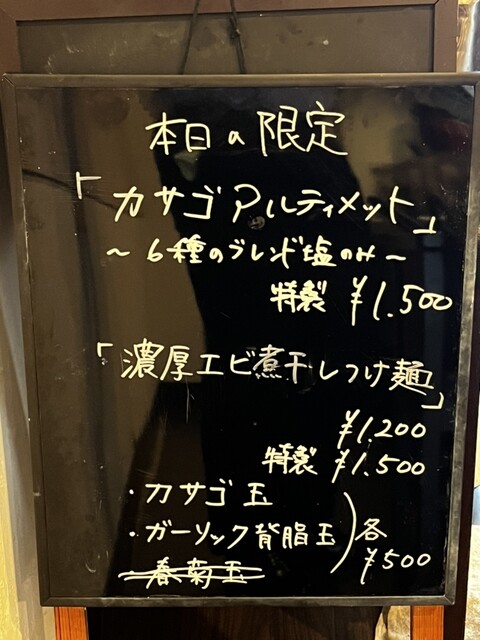 本日の限定
「カサゴアルティメット」
~6種のブレンド塩のみ~
特製 ¥1.500
「濃厚エビ煮干しつけ麺」
¥1.200
特製 ¥1.500
・カサゴ玉
・ガーリック背脂玉
各¥500
春菊玉